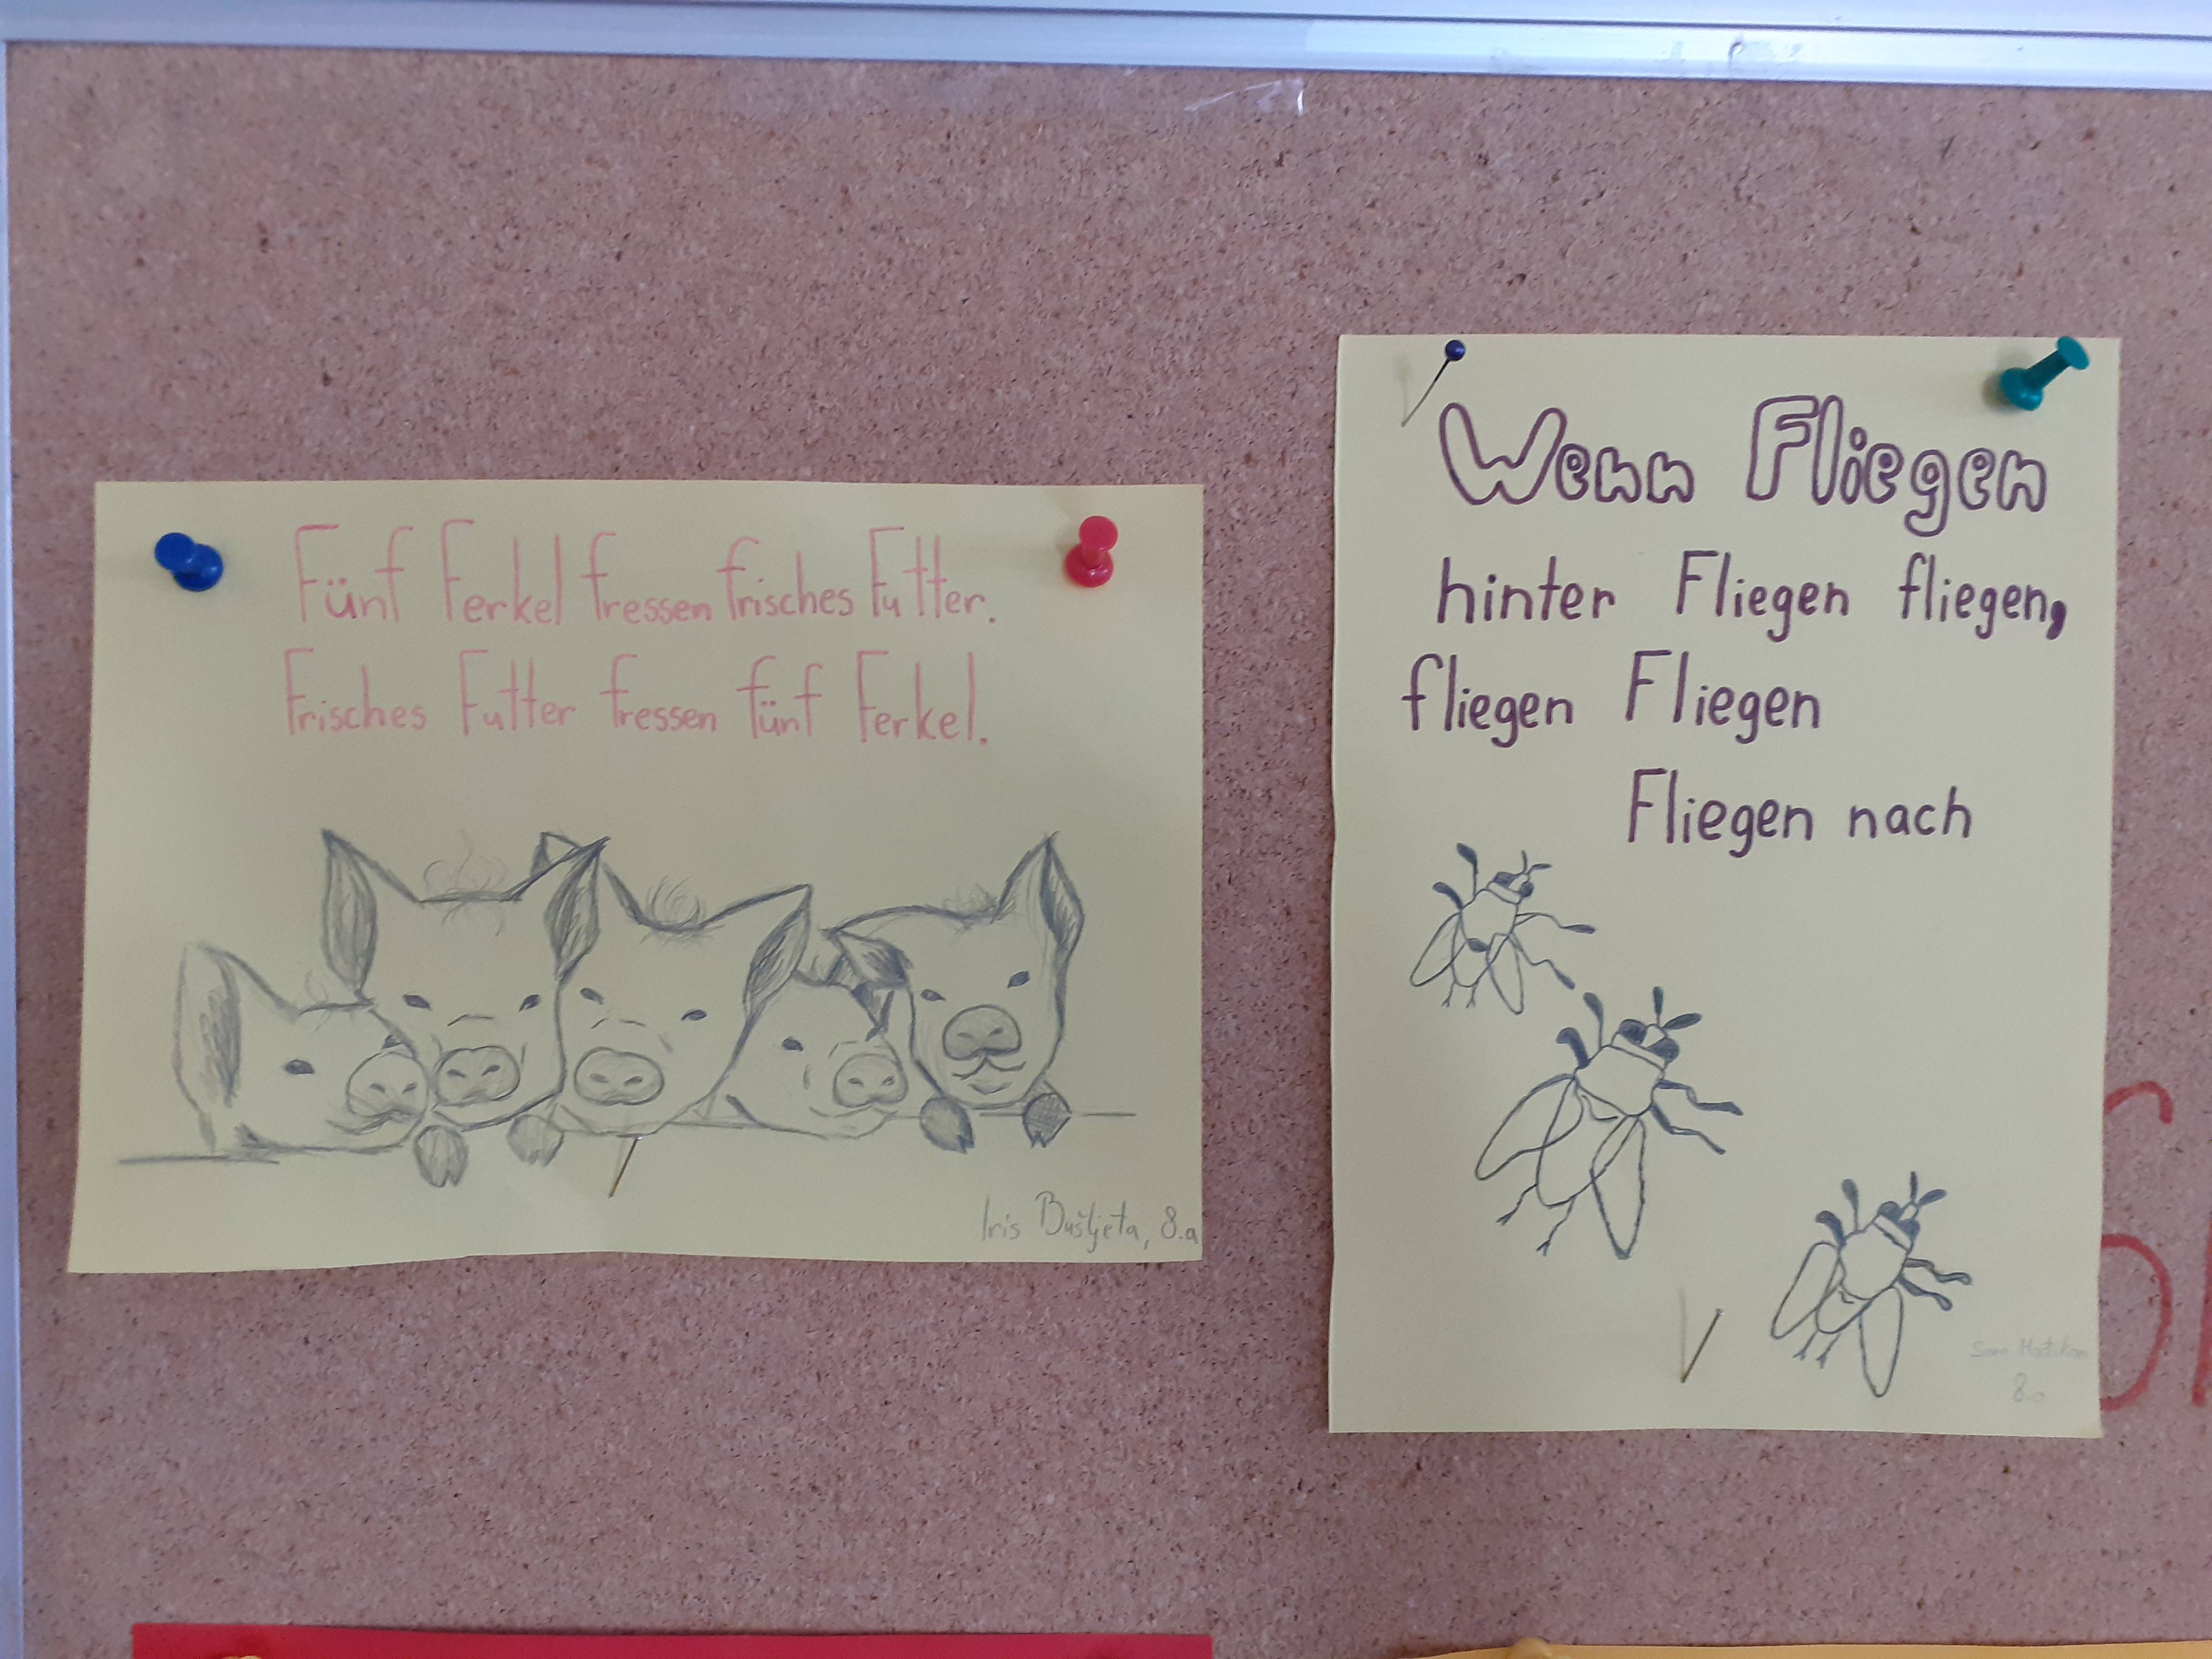 Fünf Ferkel fressen frisches Futter.
Frisches Futter fressen fünf Ferkel.
Iris Bušljeta, 8.a
Wenn Fliegen
hinter Fliegen fliegen,
fliegen Fliegen
Fliegen nach